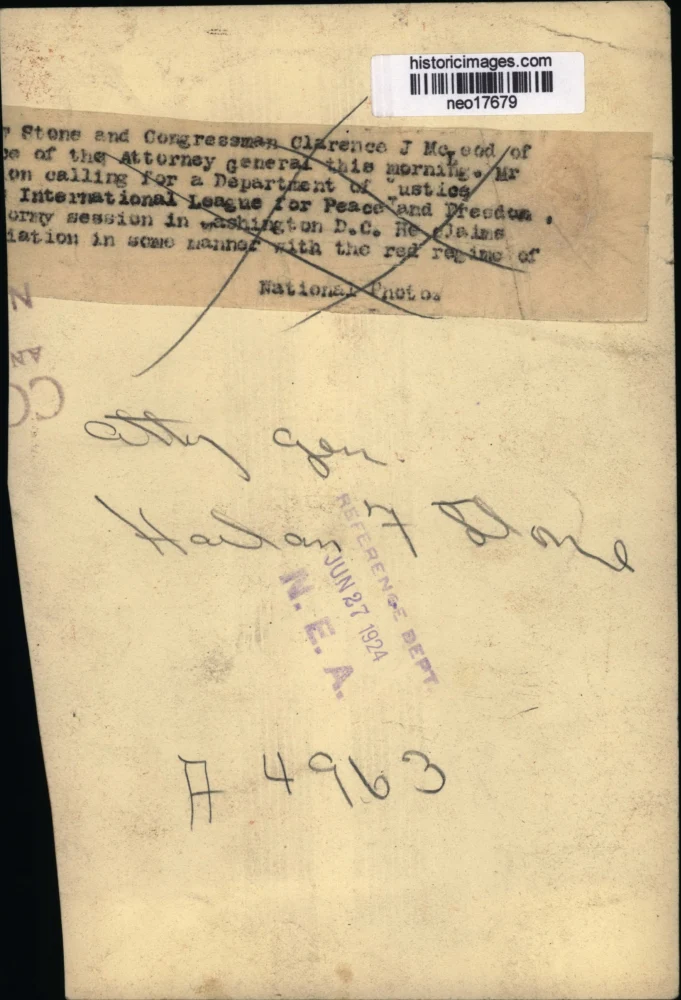 historicimages.com
neo17679
Stone and Congressman Clarence J McLeod of
of the Attorney general this morning. Mr
on calling for a Department of Justice
International League for Peace and Freedom.
session in Washington D.C. He claims
iation in some manner with the red regime of
National Photo.
N
AN
CO
Atty Gen.
Harlan F Stone
REFERENCE DEPT.
JUN 27 1924
N. E. A.
A 4963